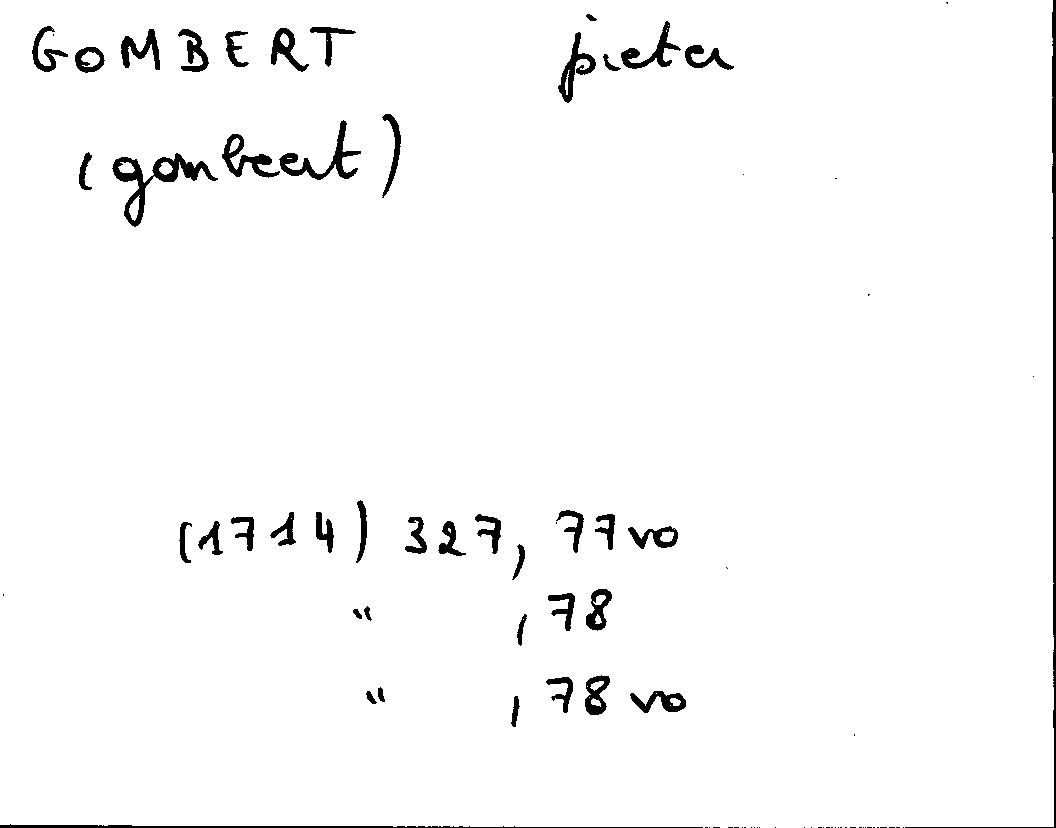 GOMBERT pieter
(gombeert)
(1714) 327, 77vo
" , 78
" , 78 vo